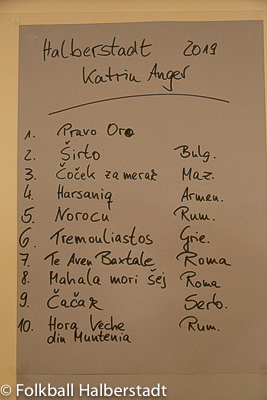 Halberstadt 2019
Katrin Anger
1. Pravo Oro
2. Širto Bulg.
3. Čoček za merak Maz.
4. Harsaniq Armen.
5. Norocu Rum.
6. Tremouliastos Grie.
7. Te Aven Baxtale Roma
8. Mahala mori šej Roma
9. Čačak Serb.
10. Hora Veche Rum.
din Muntenia
© Folkball Halberstadt